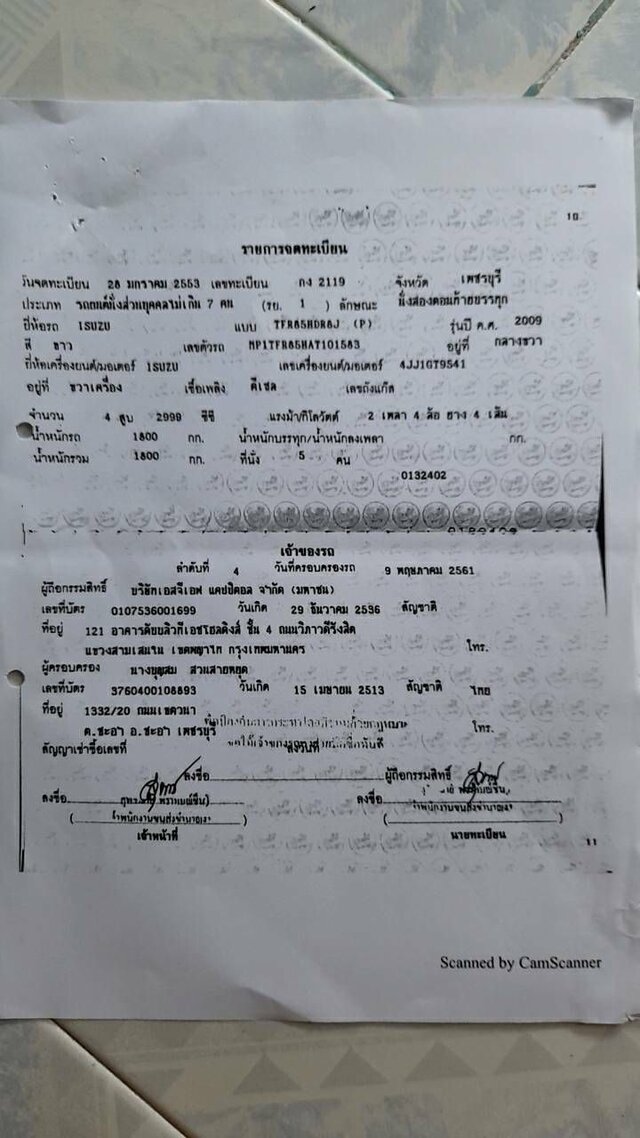 10
รายการจดทะเบียน
วันจดทะเบียน 28 มกราคม 2553 เลขทะเบียน กง 2119 จังหวัด เพชรบุรี
ประเภท รถยนต์นั่งส่วนบุคคลไม่เกิน 7 คน (รย. 1 ) ลักษณะ นั่งสองตอนท้ายบรรทุก
ยี่ห้อรถ ISUZU แบบ TFR85HDR8J (P) รุ่นปี ค.ศ. 2009
สี ขาว เลขตัวรถ MP1TFR85HAT101583 อยู่ที่ กลางขวา
ยี่ห้อเครื่องยนต์/มอเตอร์ ISUZU เลขเครื่องยนต์/มอเตอร์ 4JJ1GT9541
อยู่ที่ ขวาเครื่อง เชื้อเพลิง ดีเซล เลขถังแก๊ส
จำนวน 4 สูบ 2999 ซีซี แรงม้า/กิโลวัตต์ 2 เพลา 4 ล้อ ยาง 4 เส้น
น้ำหนักรถ 1800 กก. น้ำหนักบรรทุก/น้ำหนักลงเพลา กก.
น้ำหนักรวม 1800 กก. ที่นั่ง 5 คน
0132402
เจ้าของรถ
ลำดับที่ 4 วันที่ครอบครองรถ 9 พฤษภาคม 2561
ผู้ถือกรรมสิทธิ์ บริษัทเอสจีเอฟ แคปปิตอล จำกัด (มหาชน)
เลขที่บัตร 0107536001699 วันเกิด 29 ธันวาคม 2536 สัญชาติ
ที่อยู่ 121 อาคารดับบลิวทีเอชโฮลดิงส์ ชั้น 4 ถนนวิภาวดีรังสิต
แขวงสามเสนใน เขตพญาไท กรุงเทพมหานคร โทร.
ผู้ครอบครอง นางบุญสม สวนสายหยุด
เลขที่บัตร 3760400108893 วันเกิด 15 เมษายน 2513 สัญชาติ ไทย
ที่อยู่ 1332/20 ถนนเขควนา
ต.ชะอำ อ.ชะอำ เพชรบุรี โทร.
สัญญาเช่าซื้อเลขที่ ลงวันที่
ลงชื่อ ผู้ถือกรรมสิทธิ์
ลงชื่อ ลงชื่อ
เจ้าหน้าที่ นายทะเบียน
11
Scanned by CamScanner